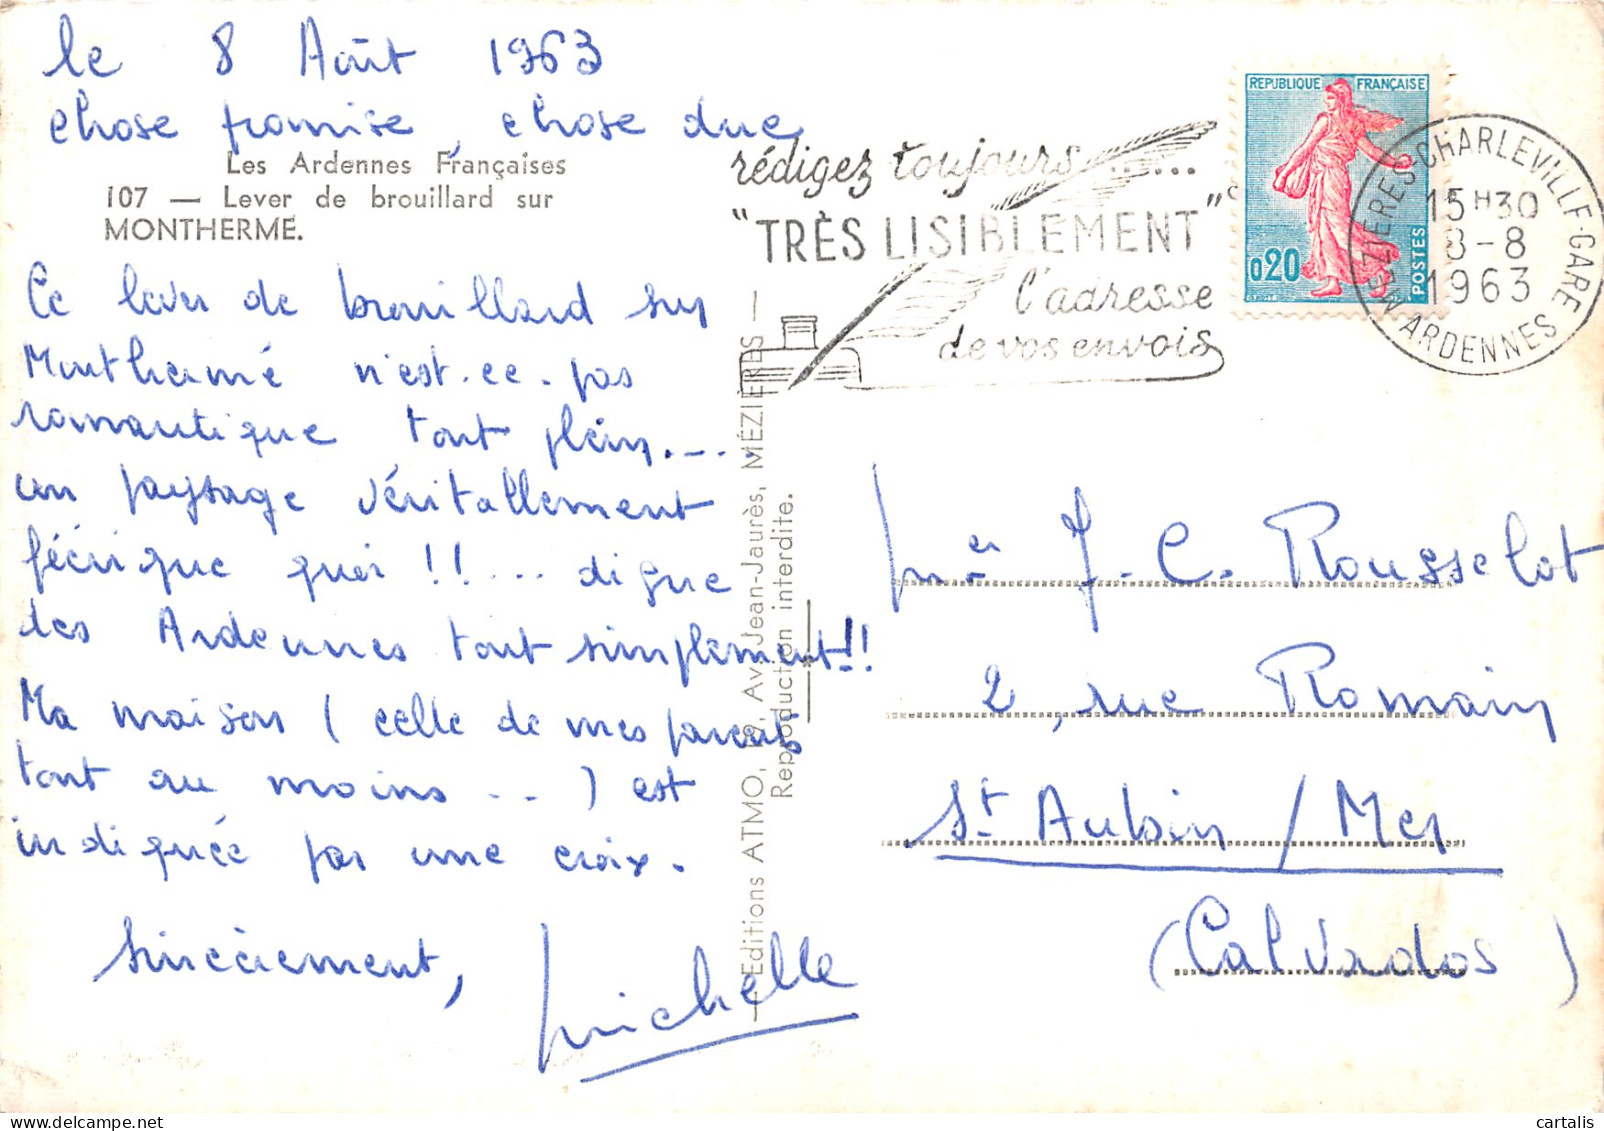 le 8 Août 1963
chose promise, chose due,
Les Ardennes Françaises
107 — Lever de brouillard sur
MONTHERMÉ.
Ce lever de brouillard sur
Monthermé n'est-ce-pas
romantique tout plein....
un paysage véritallement
féérique quoi !!... digne
des Ardennes tout simplement!!
Ma maison (celle de mes parents
tout au moins...) est
indiquée par une croix.
Sincèrement,
Michelle
— Editions ATMO, Av. Jean-Jaurès, MÉZIÈRES —
Reproduction interdite.
rédigez toujours......
"TRÈS LISIBLEMENT"
l'adresse
de vos envois
REPUBLIQUE FRANÇAISE
0,20
POSTES
MÉZIÈRES-CHARLEVILLE-GARE
15 H 30
8-8
1963
ARDENNES
J-C. Rousselot
2, rue Romain
St Aubin / Mer
(Calvados)
cartalis
delcampe.net